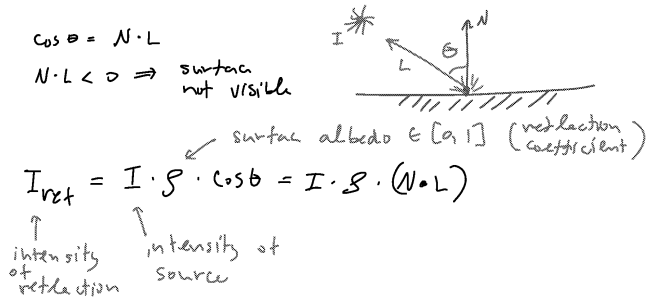 cos θ = N·L
N·L < 0 ⇒ surface
not visible
I
L
θ
N
surface albedo ∈ [0,1] (reflection
coefficient)
I_ref = I · ρ · cos θ = I · ρ · (N·L)
intensity
of
reflection
intensity of
source